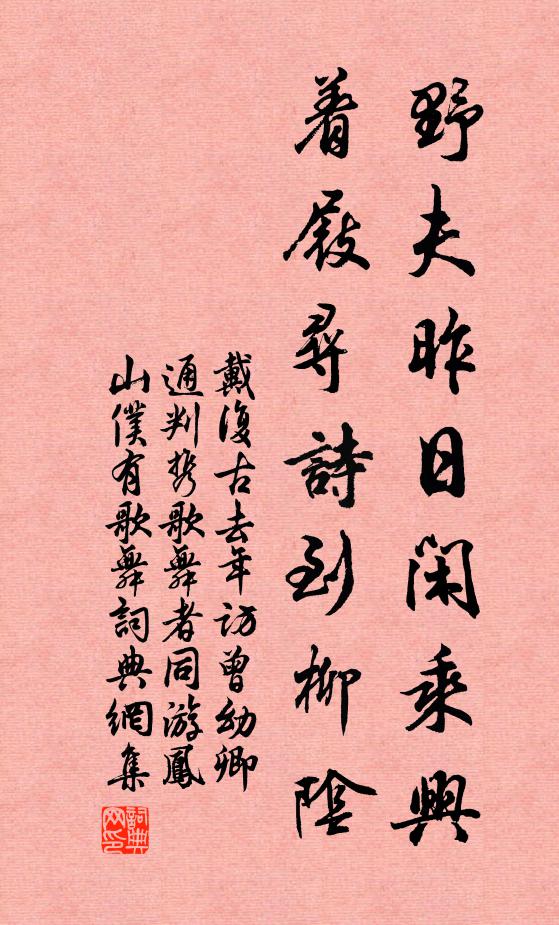 野夫昨日閑乘興
着屐尋詩到柳陰
戴復古去年訪曾幼卿
通判携歌舞者同游鳳
山僕有歌舞詞典網集
詞典网印